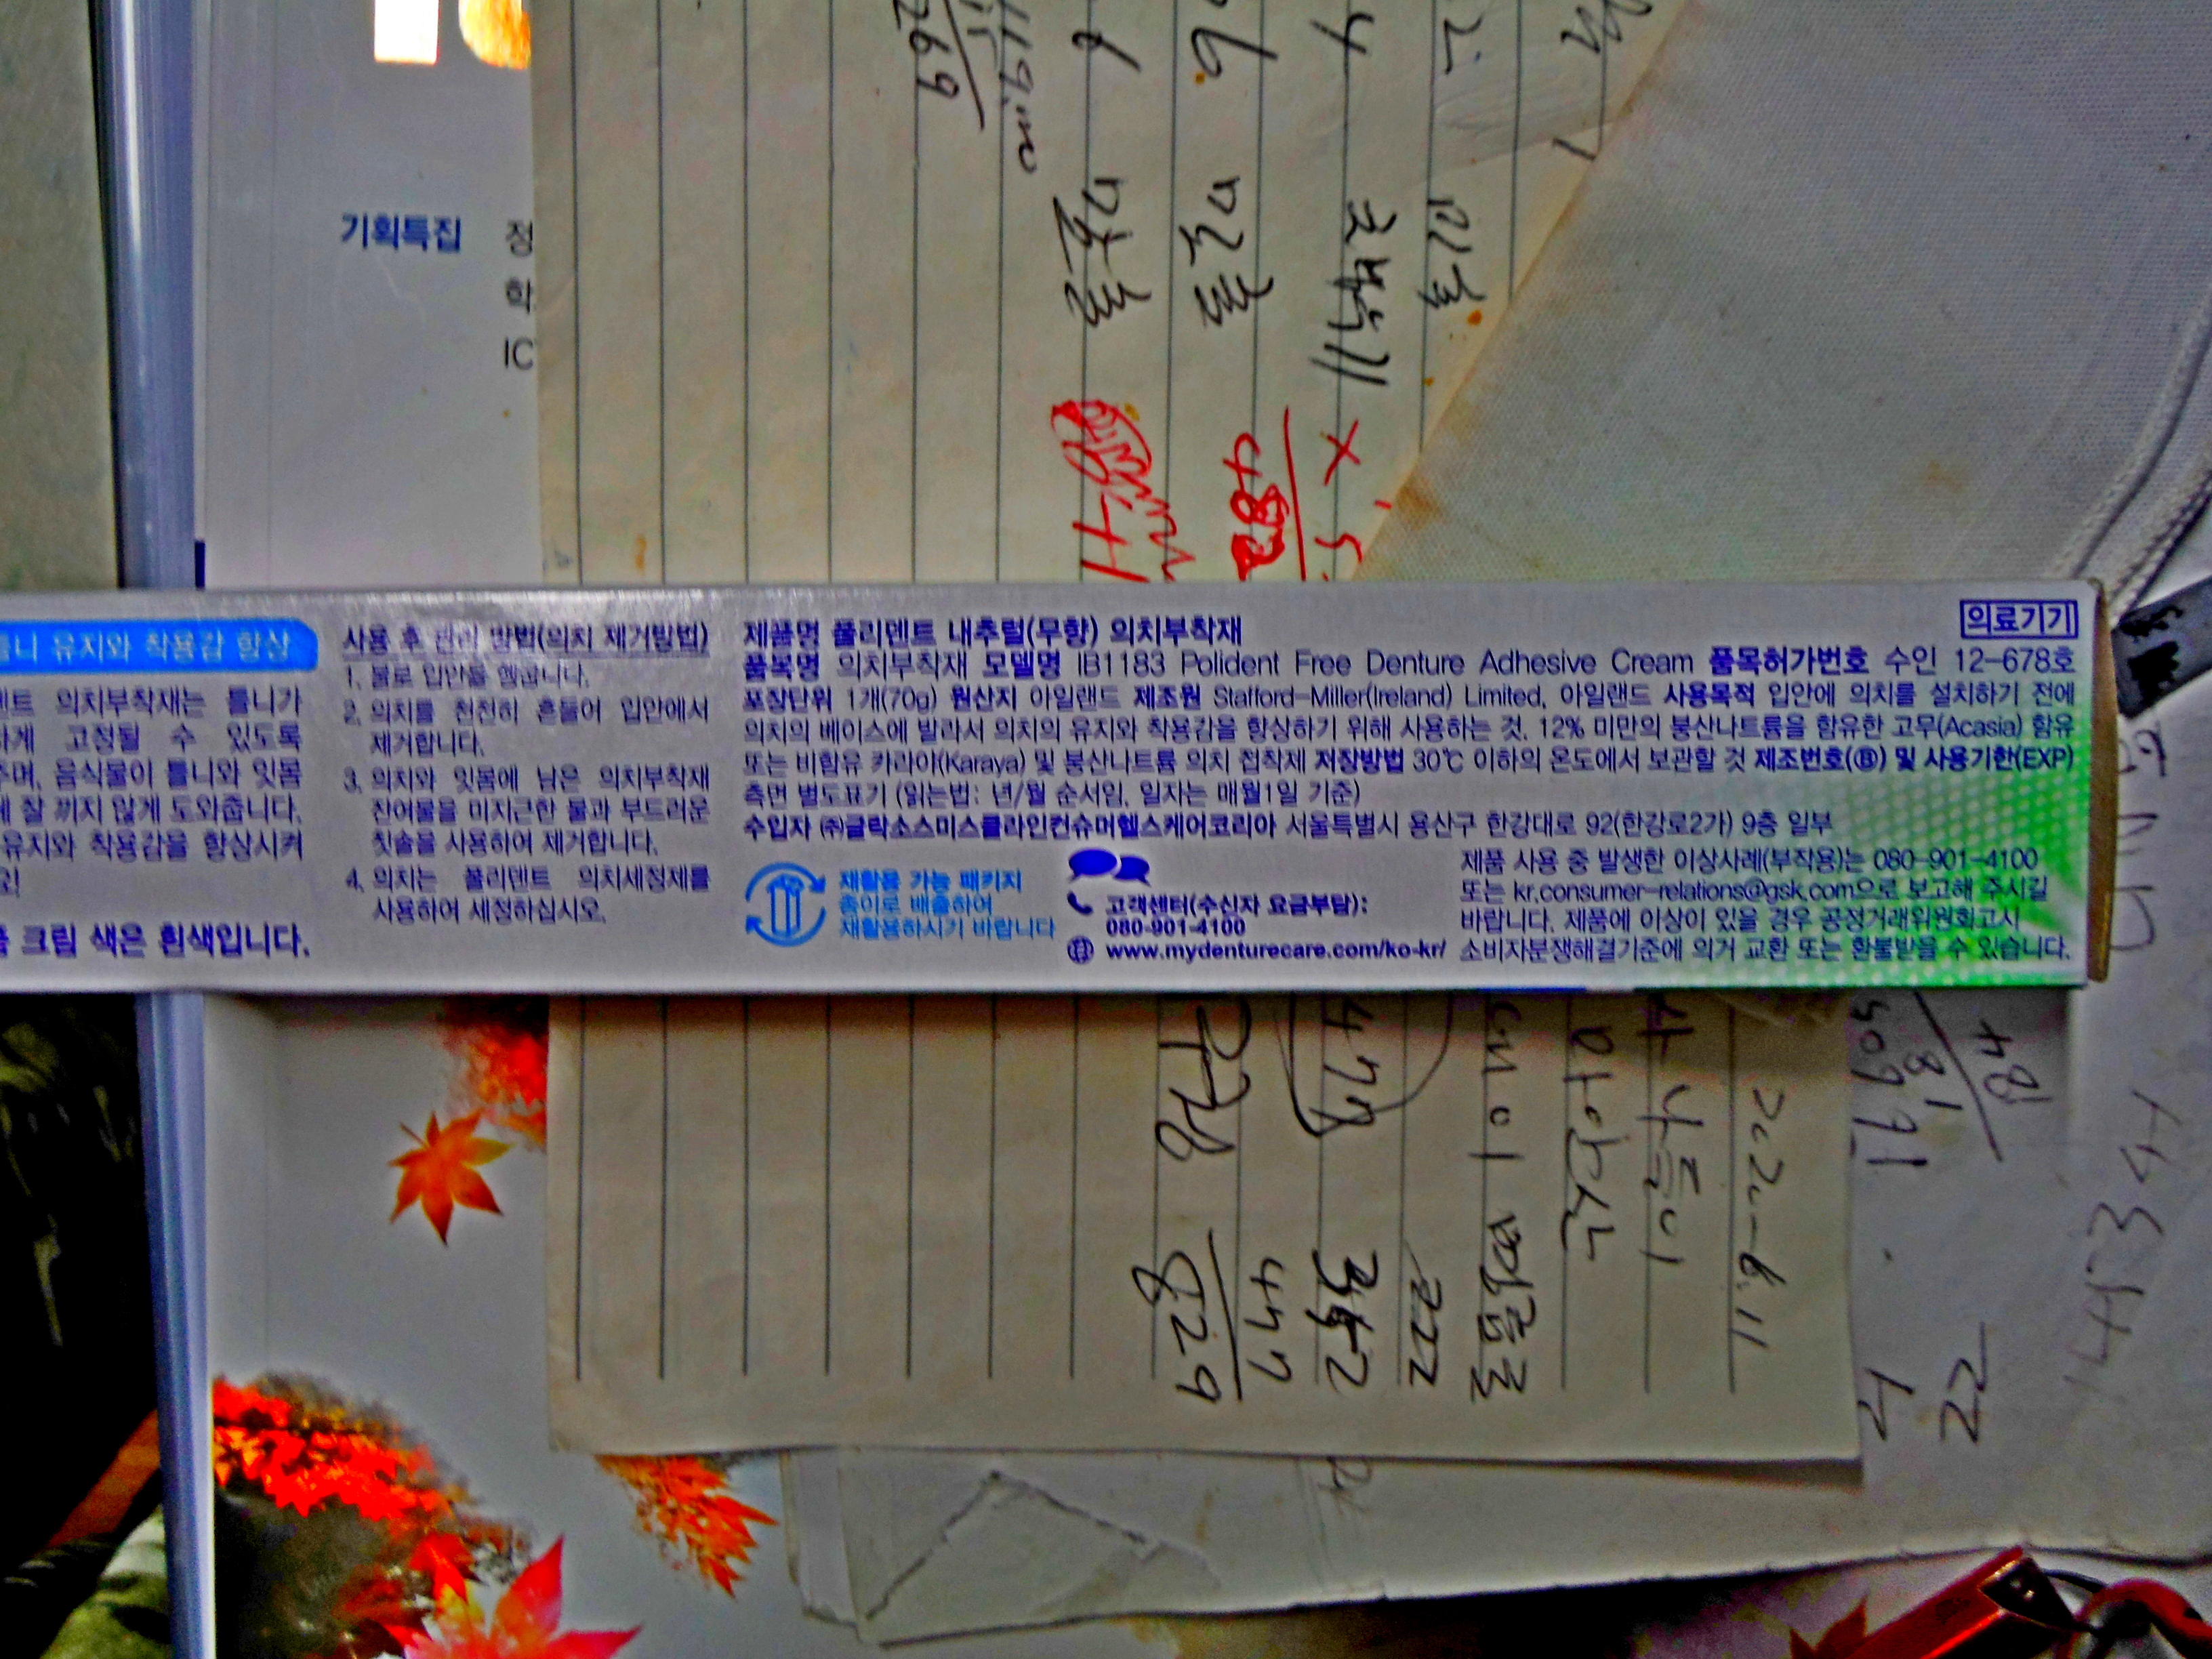 269
기획특집
정
학
IC
482
의료기기
유지와 착용감 향상
의치부착재는 틀니가
고정될 수 있도록
음식물이 틀니와 잇몸
잘 끼지 않게 도와줍니다.
유지와 착용감을 향상시켜
크림 색은 흰색입니다.
사용 후 관리 방법(의치 제거방법)
1. 물로 입안을 헹굽니다.
2. 의치를 천천히 흔들어 입안에서
제거합니다.
3. 의치와 잇몸에 남은 의치부착재
잔여물을 미지근한 물과 부드러운
칫솔을 사용하여 제거합니다.
4. 의치는 폴리덴트 의치세정제를
사용하여 세정하십시오.
제품명 폴리덴트 내추럴(무향) 의치부착재
품목명 의치부착재 모델명 IB1183 Polident Free Denture Adhesive Cream 품목허가번호 수인 12-678호
포장단위 1개(70g) 원산지 아일랜드 제조원 Stafford-Miller(Ireland) Limited, 아일랜드 사용목적 입안에 의치를 설치하기 전에
의치의 베이스에 발라서 의치의 유지와 착용감을 향상하기 위해 사용하는 것. 12% 미만의 붕산나트륨을 함유한 고무(Acasia) 함유
또는 비함유 카라야(Karaya) 및 붕산나트륨 의치 접착제 저장방법 30℃ 이하의 온도에서 보관할 것 제조번호(Ⓑ) 및 사용기한(EXP)
측면 별도표기 (읽는법: 년/월 순서임, 일자는 매월1일 기준)
수입자 ㈜글락소스미스클라인컨슈머헬스케어코리아 서울특별시 용산구 한강대로 92(한강로2가) 9층 일부
재활용 가능 패키지
종이로 배출하여
재활용하시기 바랍니다
고객센터(수신자 요금부담):
080-901-4100
www.mydenturecare.com/ko-kr/
제품 사용 중 발생한 이상사례(부작용)는 080-901-4100
또는 kr.consumer-relations@gsk.com으로 보고해 주시길
바랍니다. 제품에 이상이 있을 경우 공정거래위원회고시
소비자분쟁해결기준에 의거 교환 또는 환불받을 수 있습니다.
477
222
477
829
481
22